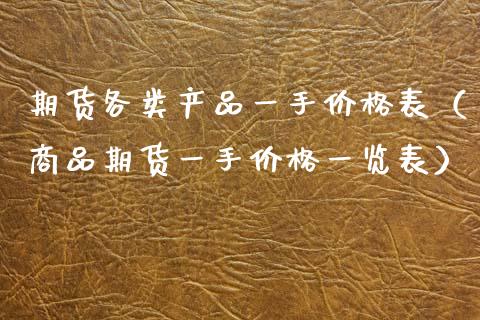 期货各类产品一手价格表（
商品期货一手价格一览表）